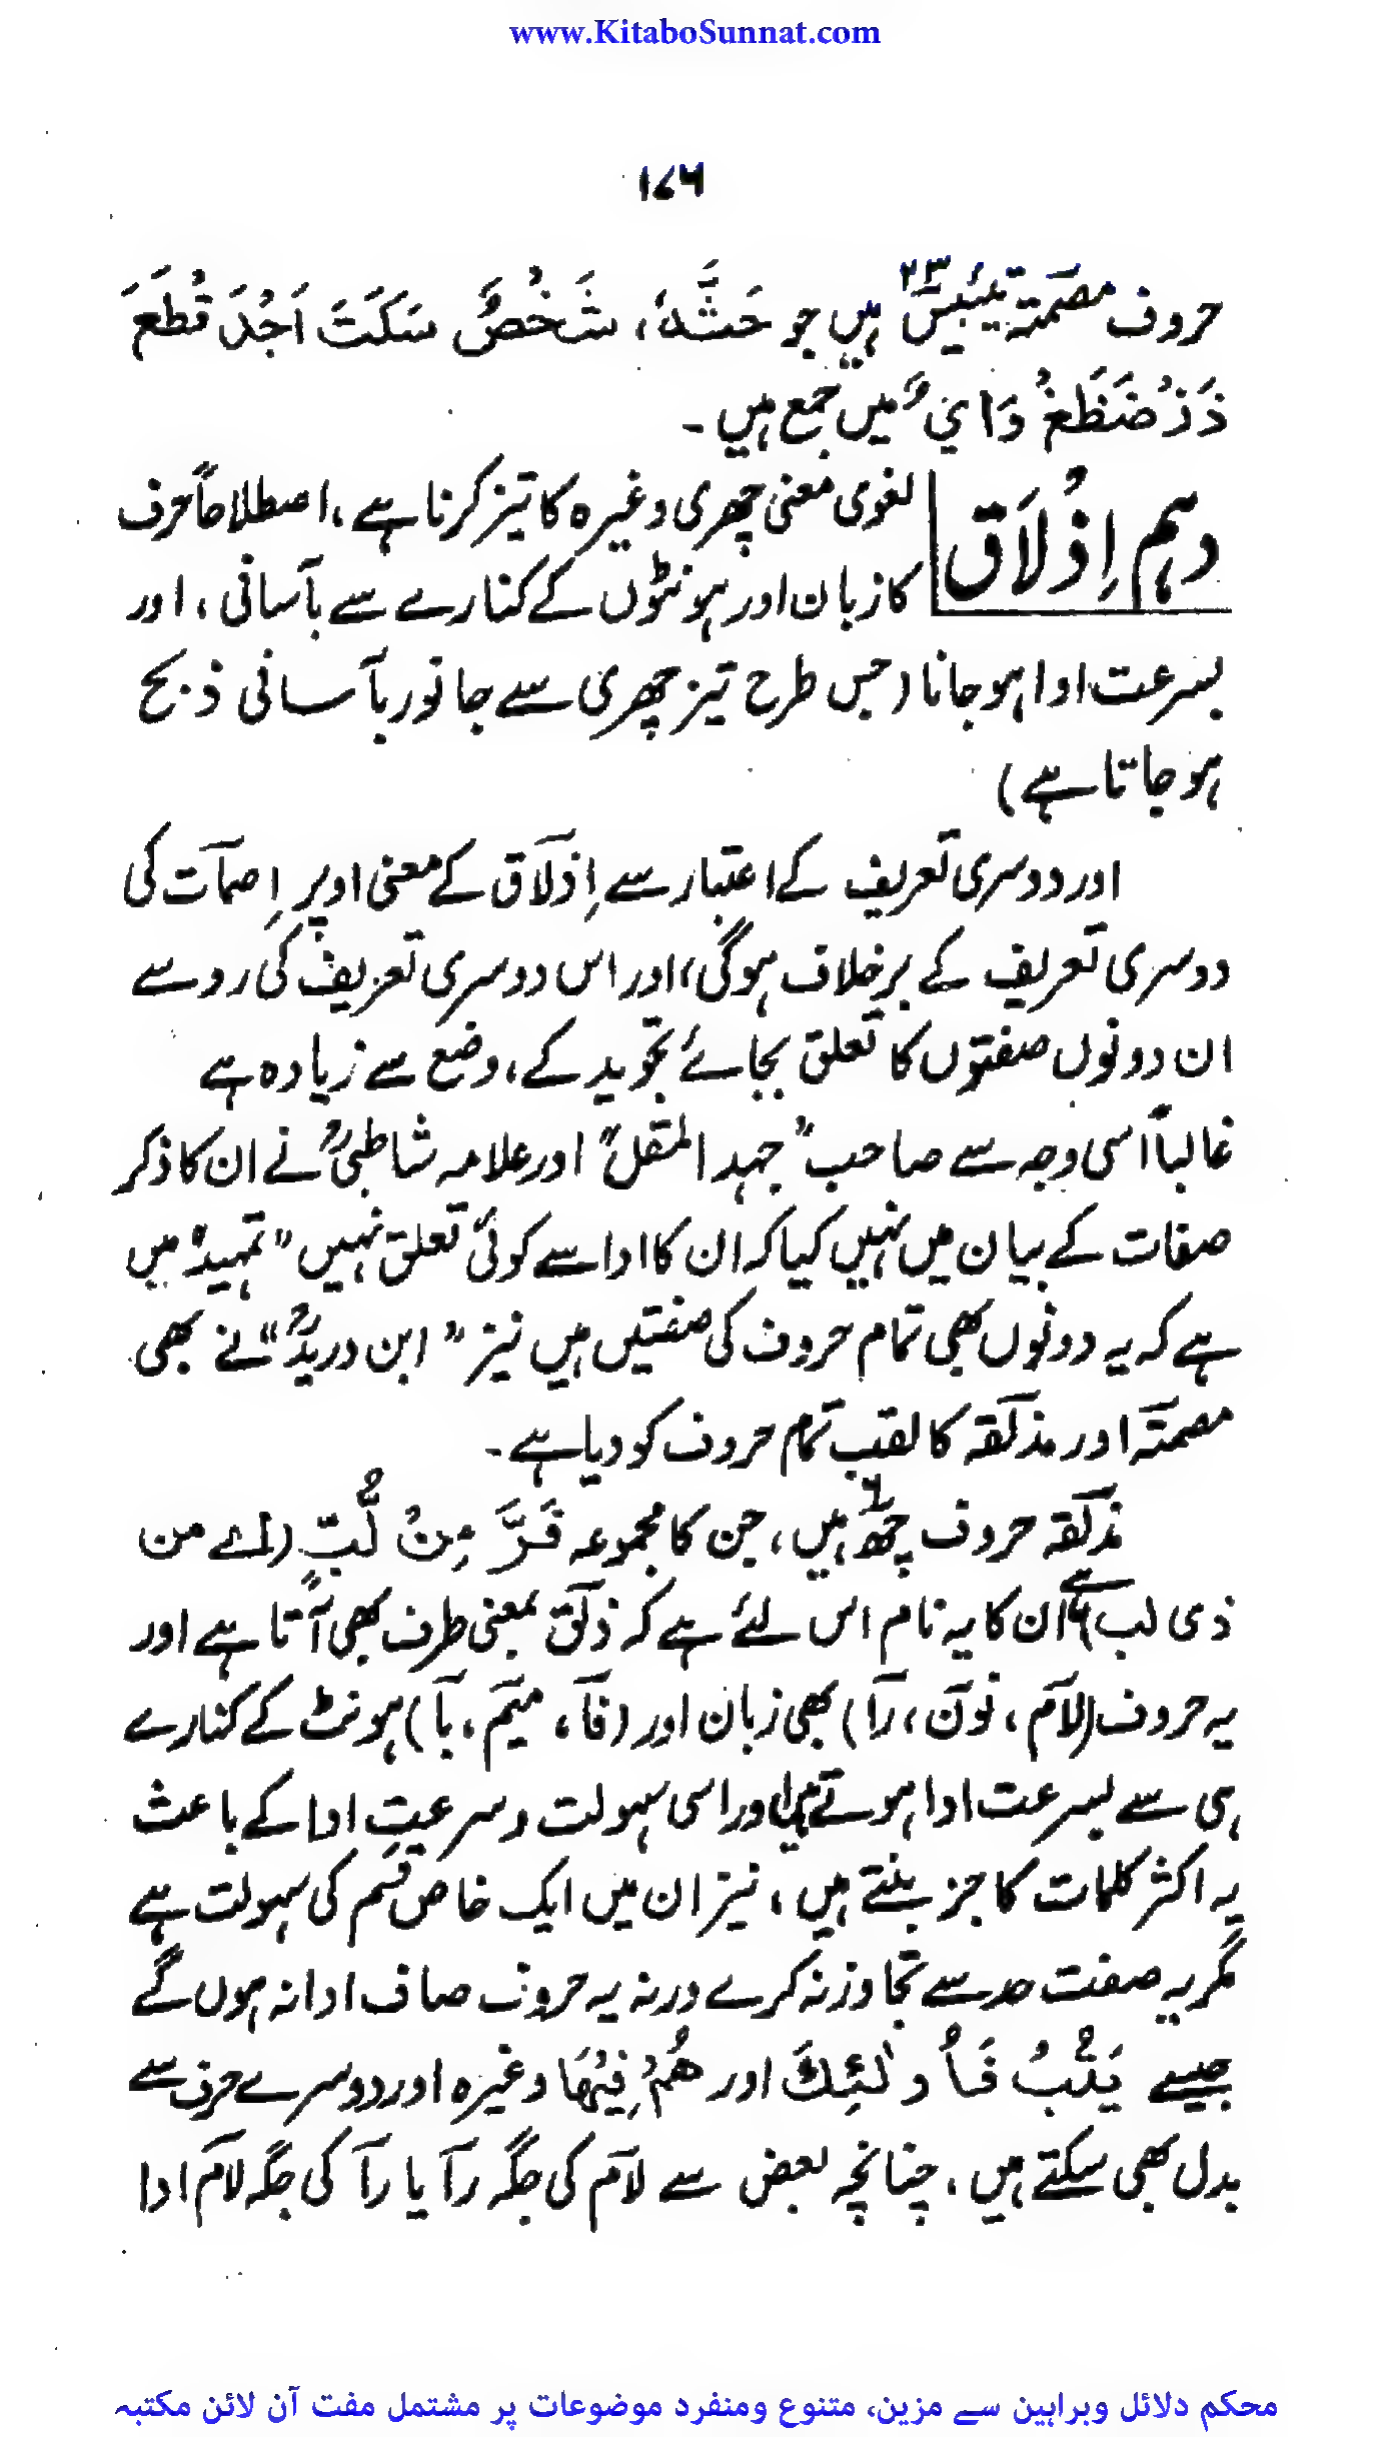 www.KitaboSunnat.com
۱۷۶
حروف مصمتہ تیئیس ۲۳ ہیں جو حَثُّهٗ، شَخْصٌ سَكَتَ اَجُدَ قُطَعَ
ذَزْ ضَظَغْ وَايِ میں جمع ہیں ۔
دہم اِذْلَاق
لغوی معنی چھری وغیرہ کا تیز کرنا ہے، اصطلاحاً حرف
کا زبان اور ہونٹوں کے کنارے سے بآسانی، اور
بسرعت ادا ہو جانا (جس طرح تیز چھری سے جانور بآسانی ذبح
ہو جاتا ہے)
اور دوسری تعریف کے اعتبار سے اِذلاق کے معنی اوپر اِصمات کی
دوسری تعریف کے برخلاف ہوگی، اور اس دوسری تعریف کی رو سے
ان دونوں صفتوں کا تعلق بجائے تجوید کے، وضع سے زیادہ ہے
غالباً اسی وجہ سے صاحب "جہد المقل" اور علامہ شاطبیؒ نے ان کا ذکر
صفات کے بیان میں نہیں کیا کہ ان کا ادا سے کوئی تعلق نہیں "تمہید" میں
ہے کہ یہ دونوں بھی تمام حروف کی صفتیں ہیں نیز "ابن دریدؒ" نے بھی
مصمتہ اور مذلقہ کا لقب تمام حروف کو دیا ہے ۔
مذلقہ حروف چھ ۶ ہیں، جن کا مجموعہ فَرَّ مِنْ لُّبٍّ (اے من
ذی لب) ہے ان کا یہ نام اس لئے ہے کہ ذلق بمعنی طرف بھی آتا ہے اور
یہ حروف (لام، نون، را) بھی زبان اور (فا، میم، با) ہونٹ کے کنارے
ہی سے بسرعت ادا ہوتے ہیں اور اسی سہولت وسرعتِ ادا کے باعث
یہ اکثر کلمات کا جز بنتے ہیں، نیز ان میں ایک خاص قسم کی سہولت ہے
مگر یہ صفت حد سے تجاوز نہ کرے ورنہ یہ حروف صاف ادا نہ ہوں گے
جیسے يَتُبْ فَاُولٰئِكَ اور هُمْ فِيْهَا وغیرہ اور دوسرے حرف سے
بدل بھی سکتے ہیں، چنانچہ بعض سے لام کی جگہ را یا را کی جگہ لام ادا
محکم دلائل وبراہین سے مزین، متنوع ومنفرد موضوعات پر مشتمل مفت آن لائن مکتبہ